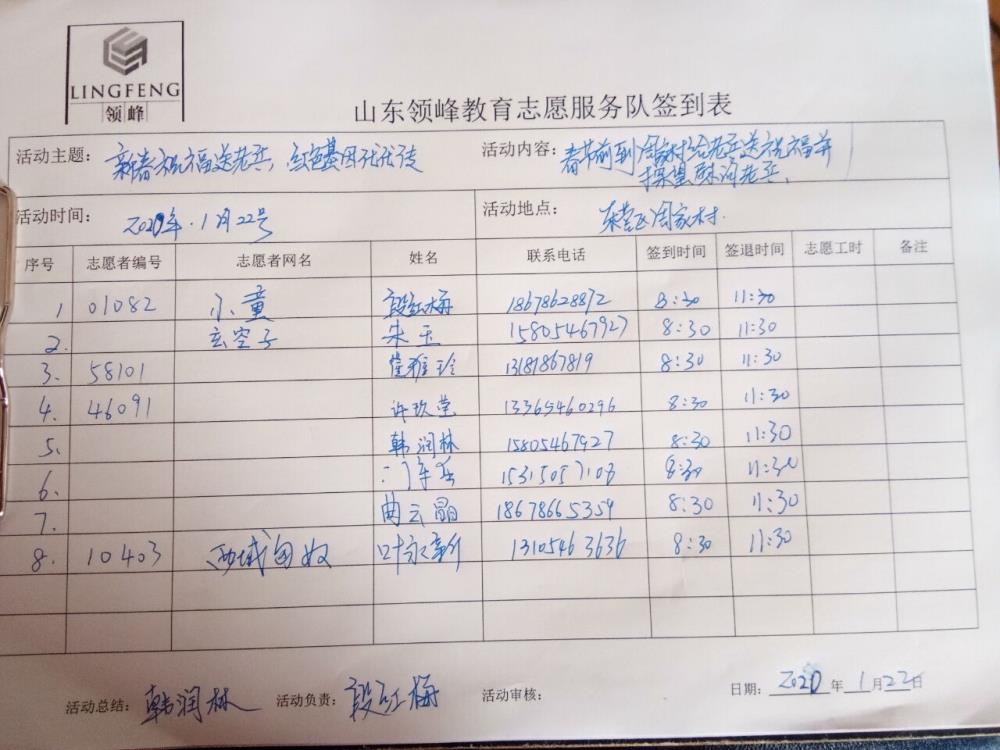 LINGFENG
领峰
山东领峰教育志愿服务队签到表
活动主题：新春祝福送老兵，红色基因代代传
活动内容：春节前到周家村给老兵送祝福并
探望慰问老兵、
活动时间：2020年·1月22号
活动地点：东营区周家村.
序号 志愿者编号 志愿者网名 姓名 联系电话 签到时间 签退时间 志愿工时 备注
1 01082 小童 段红梅 18678628872 8:30 11:30
2. 玄空子 朱玉 15805467927 8:30 11:30
3. 58101 雅玲 13181867819 8:30 11:30
4. 46091 许玖莹 13365460296 8:30 11:30
5. 韩润林 15805467927 8:30 11:30
6. 15315057108 8:30 11:30
7. 曲云晶 18678665359 8:30 11:30
8. 10403 西域匈奴 叶永新 13105463636 8:30 11:30
活动总结：韩润林 活动负责：段红梅 活动审核： 日期：2020年1月22日